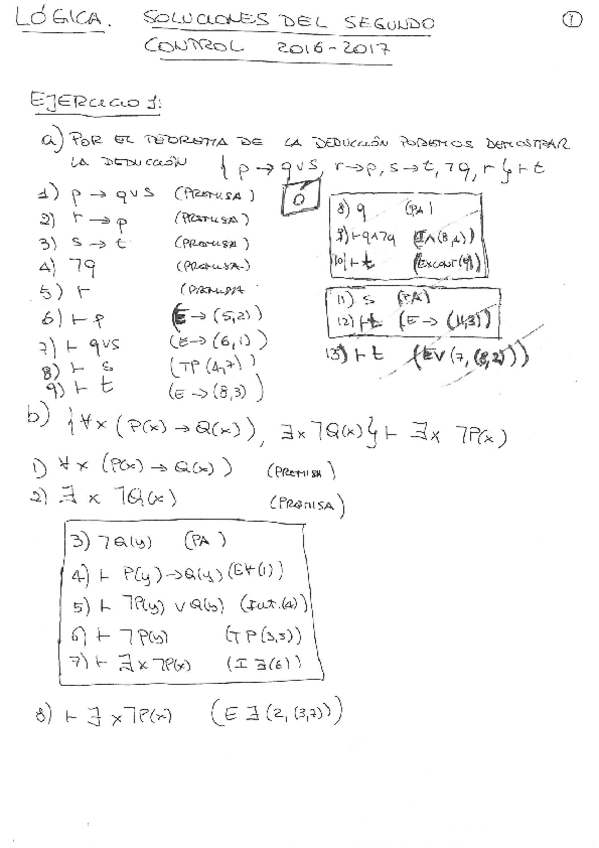 LÓGICA. SOLUCIONES DEL SEGUNDO
CONTROL 2016-2017
1
EJERCICIO 1:
a) POR EL TEOREMA DE LA DEDUCCIÓN PODEMOS DEMOSTRAR
LA DEDUCCIÓN { p → q∨s, r→p, s→t, ¬q, r } ⊢ t
1) p → q∨s (PREMISA)
2) r → p (PREMISA)
3) s → t (PREMISA)
4) ¬q (PREMISA)
5) r (PREMISA
6) ⊢ p (E→ (5,2))
7) ⊢ q∨s (E→ (6,1))
8) ⊢ s (TP (4,7))
9) ⊢ t (E→ (8,3))
Ó
8) q (PA)
9) ⊢ q∧¬q (I∧(8,4))
10) ⊢ t (EXCONT(9))
11) s (PA)
12) ⊢ t (E→ (11,3))
13) ⊢ t (E∨ (7, (8,2)))
b) {∀x (P(x) → Q(x)), ∃x ¬Q(x)} ⊢ ∃x ¬P(x)
1) ∀x (P(x) → Q(x)) (PREMISA)
2) ∃x ¬Q(x) (PREMISA)
3) ¬Q(y) (PA)
4) ⊢ P(y) → Q(y) (E∀(1))
5) ⊢ ¬P(y) ∨ Q(y) (Int.(4))
6) ⊢ ¬P(y) (TP(3,5))
7) ⊢ ∃x ¬P(x) (I∃(6))
8) ⊢ ∃x ¬P(x) (E∃(2,(3,7)))